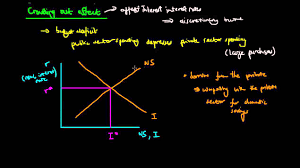 Crowding out effect → affect interest rates
→ discretionary income
→ budget deficit
public sector spending depresses private sector spending
(large purchases)
r
(real interest rate)
NS
r*
I
I*
NS, I
• borrow from the private
→ competing with the private
sector for domestic
savings